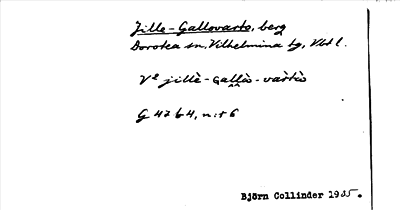 Jille-Gallovarto, berg
Dorotea sn, Vilhelmina tg, Vbt l.
V² jillē-gallōs-vārtōs
G 4264, n:r 6
Björn Collinder 1935.